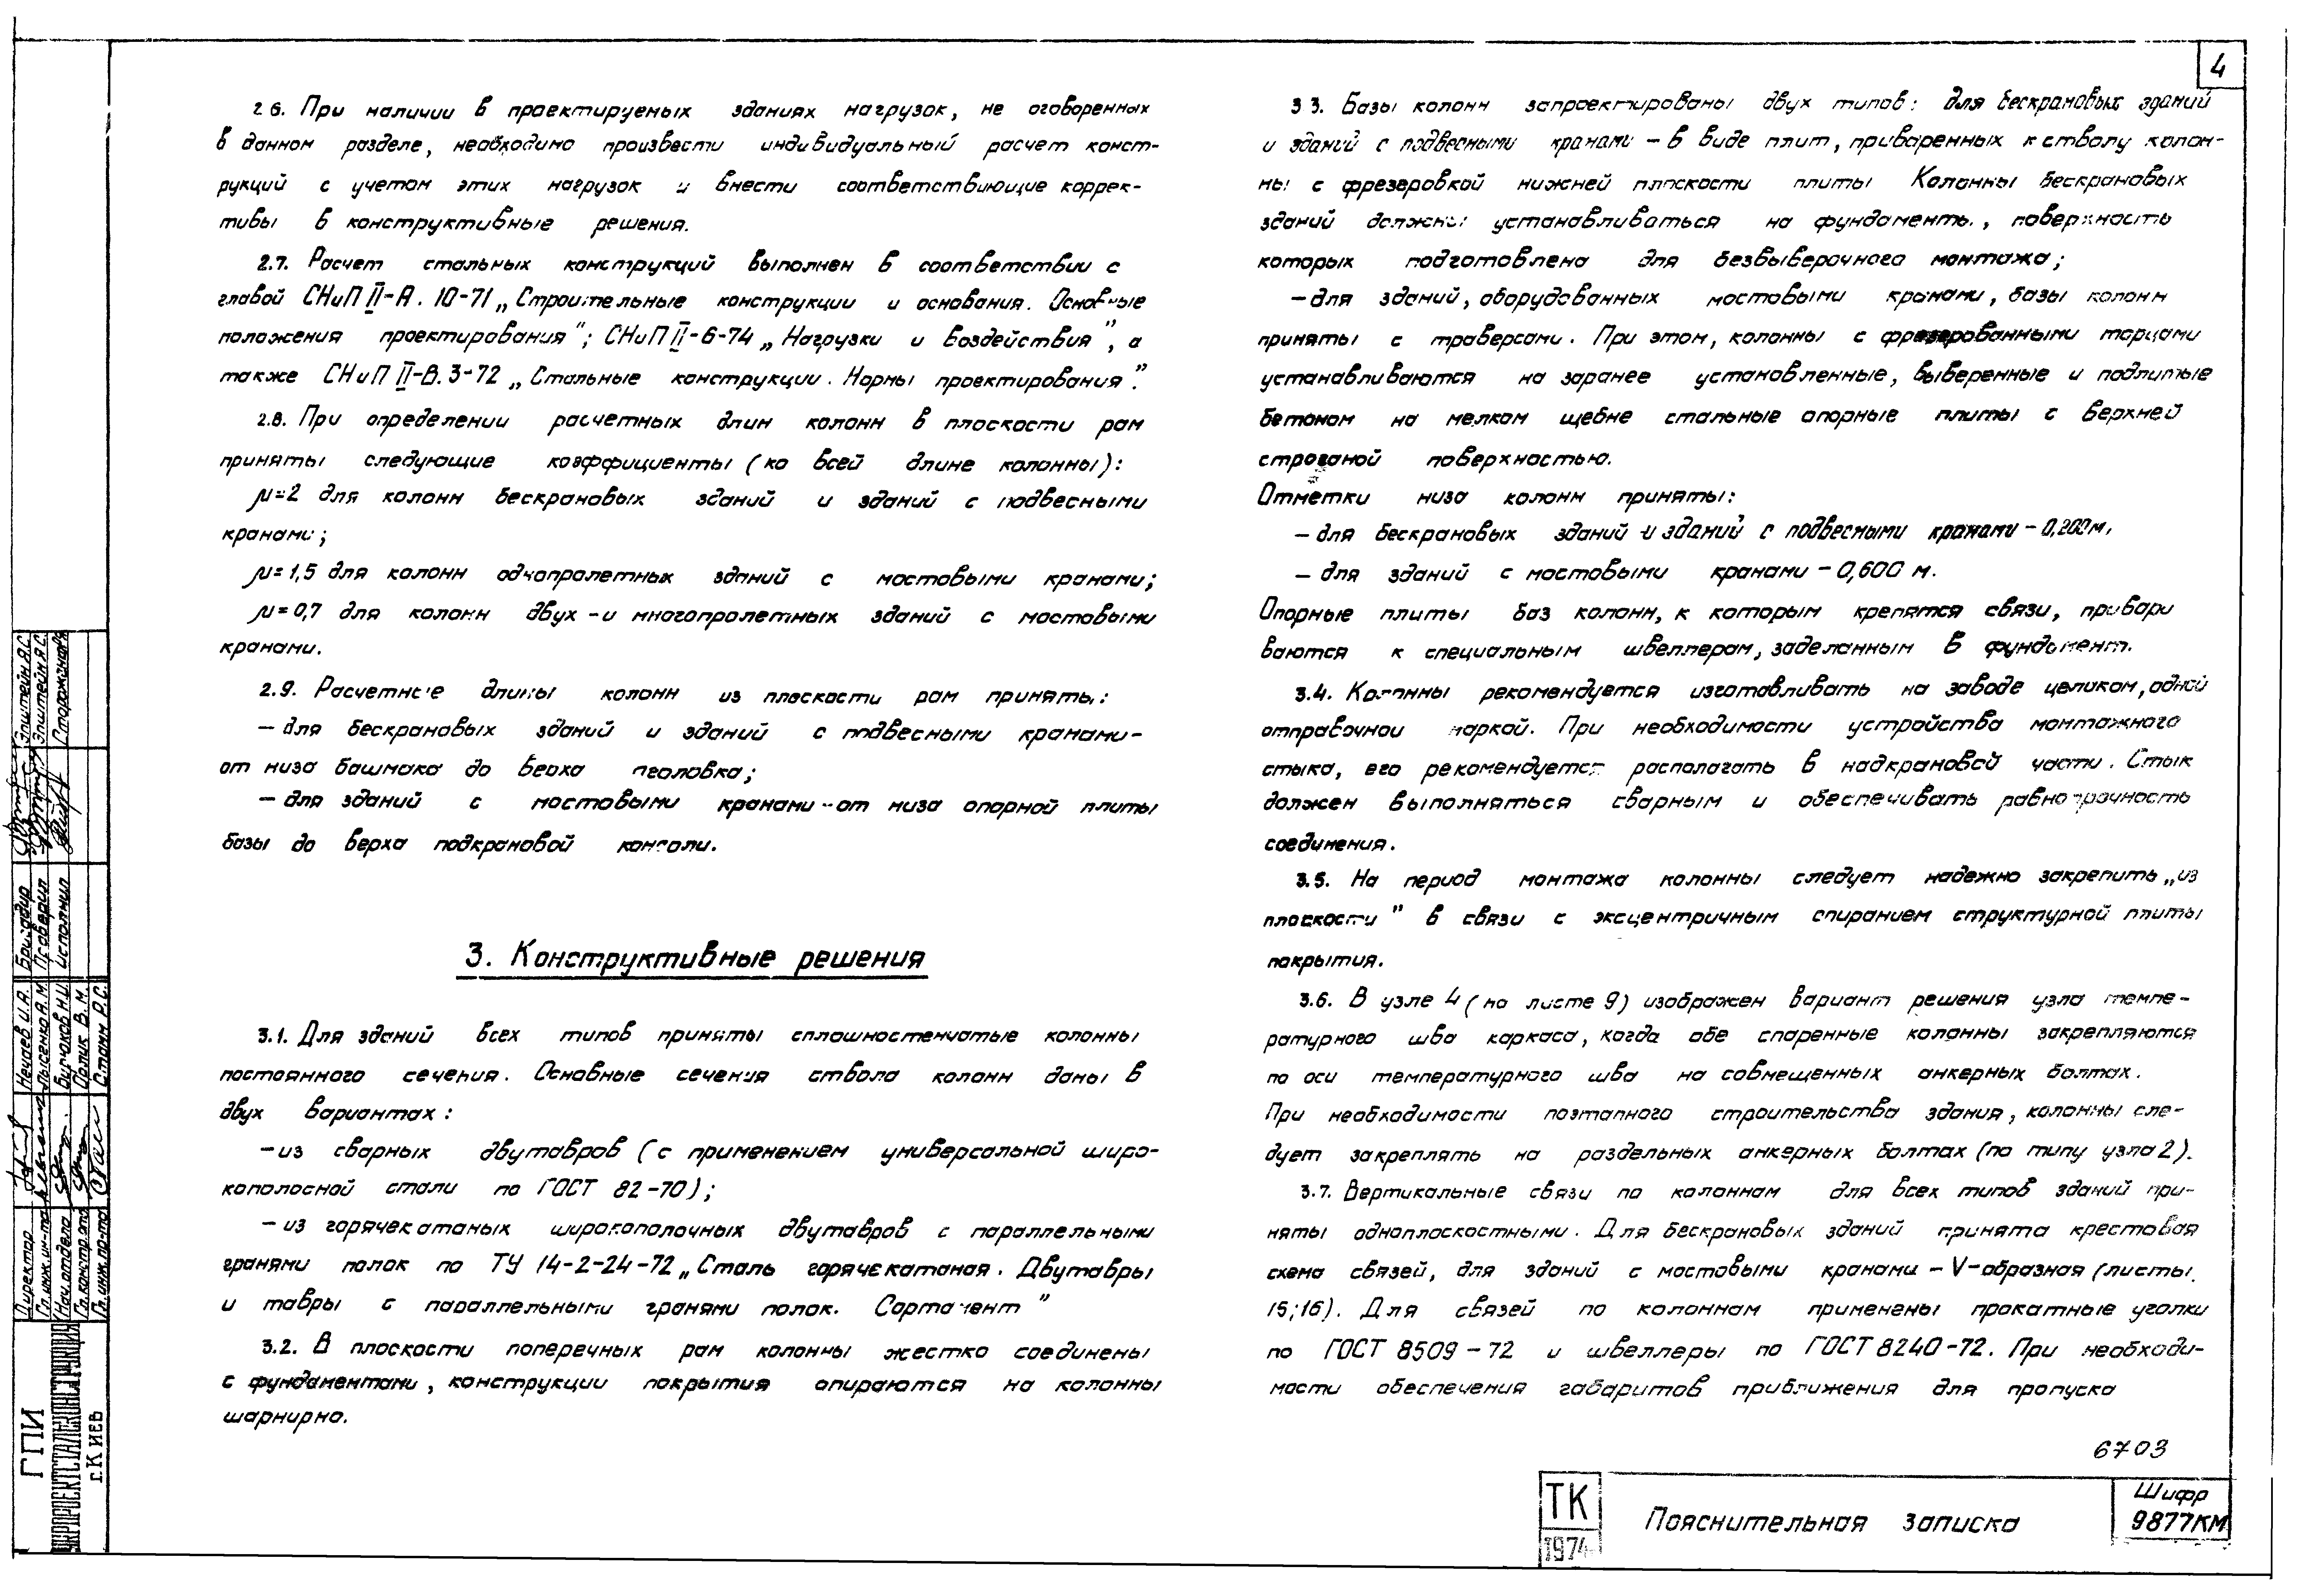 4
2.6. При наличии в проектируемых зданиях нагрузок, не оговоренных
в данном разделе, необходимо произвести индивидуальный расчет конст-
рукций с учетом этих нагрузок и внести соответствиющие коррек-
тивы в конструктивные решения.
2.7. Расчет стальных конструкций выполнен в соответствии с
главой СНиП II-А. 10-71 „Строительные конструкции и основания. Основные
положения проектирования"; СНиП II-6-74 „Нагрузки и воздействия", а
также СНиП II-В.3-72 „Стальные конструкции. Нормы проектирования".
2.8. При определении расчетных длин колонн в плоскости рам
приняты следующие коэффициенты (ко всей длине колонны):
μ=2 для колонн бескрановых зданий и зданий с подвесными
кранами;
μ=1,5 для колонн однопролетных зданий с мостовыми кранами;
μ=0,7 для колонн двух-и многопролетных зданий с мостовыми
кранами.
2.9. Расчетные длины колонн из плоскости рам приняты:
- для бескрановых зданий и зданий с подвесными кранами-
от низа башмака до верха оголовка;
- для зданий с мостовыми кранами-от низа опорной плиты
базы до верха подкрановой консоли.
3. Конструктивные решения
3.1. Для зданий всех типов приняты сплошностенчатые колонны
постоянного сечения. Основные сечения ствола колонн даны в
двух вариантах:
-из сварных двутавров (с применением универсальной широ-
кополосной стали по ГОСТ 82-70);
-из горячекатаных широкополочных двутавров с параллельными
гранями полок по ТУ 14-2-24-72 „Сталь горячекатаная. Двутавры
и тавры с параллельными гранями полок. Сортамент"
3.2. В плоскости поперечных рам колонны жестко соединены
с фундаментами, конструкции покрытия опираются на колонны
шарнирно.
3.3. Базы колонн запроектированы двух типов: для бескрановых зданий
и зданий с подвесными кранами - в виде плит, приваренных к стволу колон-
ны с фрезеровкой нижней плоскости плиты Колонны бескрановых
зданий должны устанавливаться на фундаменты, поверхность
которых подготовлена для безвыверочного монтажа;
-для зданий, оборудованных мостовыми кранами, базы колонн
приняты с траверсами. При этом, колонны с фрезерованными торцами
устанавливаются на заранее установленные, выверенные и подлитые
бетоном на мелком щебне стальные опорные плиты с верхней
строганой поверхностью.
Отметки низа колонн приняты:
- для бескрановых зданий и зданий с подвесными кранами - 0,200м,
- для зданий с мостовыми кранами - 0,600 м.
Опорные плиты баз колонн, к которым крепятся связи, привари
ваются к специальным швеллерам, заделанным в фундамент.
3.4. Колонны рекомендуется изготавливать на заводе целиком, одной
отправочной маркой. При необходимости устройства монтажного
стыка, его рекомендуется располагать в надкрановой части. Стык
должен выполняться сварным и обеспечивать равнопрочность
соединения.
3.5. На период монтажа колонны следует надежно закрепить „из
плоскости" в связи с эксцентричным опиранием структурной плиты
покрытия.
3.6. В узле 4 (на листе 9) изображен вариант решения узла темпе-
ратурного шва каркаса, когда обе спаренные колонны закрепляются
по оси температурного шва на совмещенных анкерных болтах.
При необходимости поэтапного строительства здания, колонны сле-
дует закреплять на раздельных анкерных болтах (по типу узла 2).
3.7. Вертикальные связи по колоннам для всех типов зданий при-
няты одноплоскостными. Для бескрановых зданий принята крестовая
схема связей, для зданий с мостовыми кранами - V-образная (листы
15;16). Для связей по колоннам применены прокатные уголки
по ГОСТ 8509-72 и швеллеры по ГОСТ 8240-72. При необходи-
мости обеспечения габаритов приближения для пропуска
6703
ТК
1974
Пояснительная записка
Шифр
9877КМ
ГПИ
УКРПРОЕКТСТАЛЬКОНСТРУКЦИЯ
г.Киев
Директор Нечаев И.А.
Гл. инж. ин-та Лысенко А.М.
Нач. отдела
Гл. констр. отд. Орлик В.М.
Гл. инж. пр-та Стамм Р.С.
Бригадир Эпштейн Я.С.
Проверил Эпштейн Я.С.
Исполнил